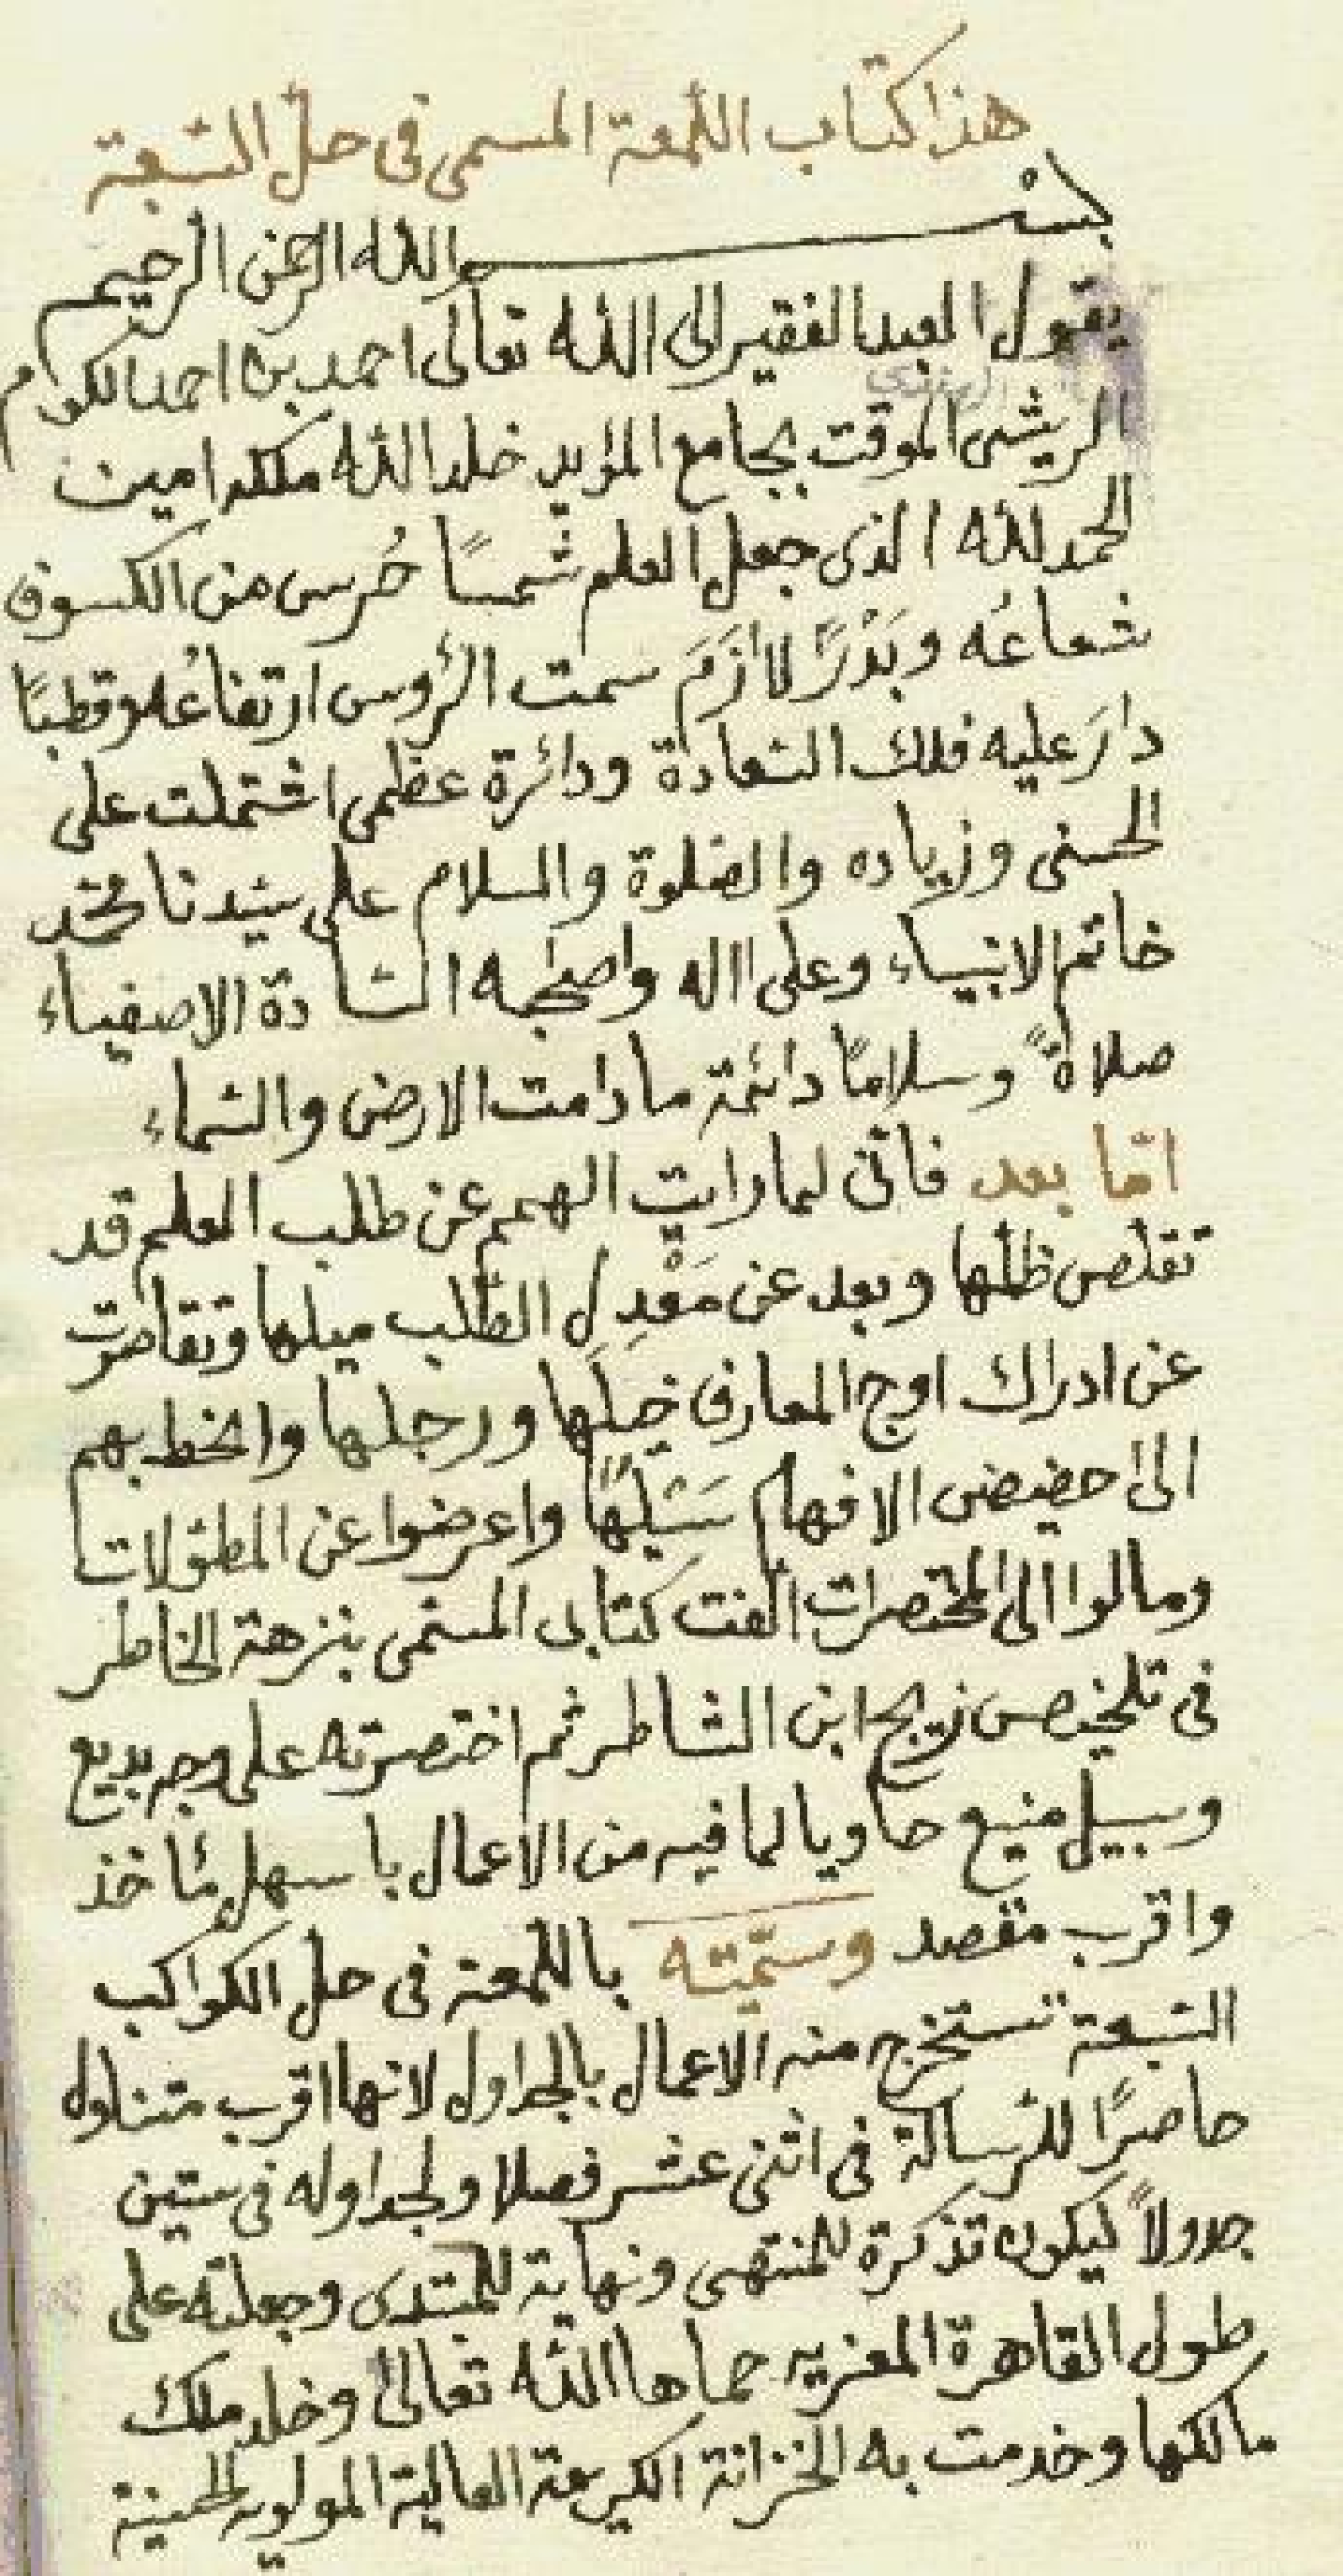 هذا كتاب اللمعة المسمى فى حل السبعة
بسم الله الرحمن الرحيم
يقول العبد الفقير الى الله تعالى احمد بن احمد الكوم
الريشى الموقت بجامع المؤيد خلد الله ملكه امين
الحمد لله الذى جعل العلم شمسًا حُرس من الكسوف
شعاعُه وبَدْرًا لازَمَ سمت الرُوس ارتفاعُه وقطبًا
دارَ عليه فلك السعادة ودائرة عظمى اشتملت على
الحسنى وزياده والصلوة والسلام على سيدنا محمد
خاتم الانبياء وعلى اله واصحبه السادة الاصفياء
صلاةً وسلامًا دائمة ما دامت الارض والسماء
امّا بعد فانى لما رايت الهمم عن طلب العلم قد
تقلص ظلها وبعد عن مَعْدِل الطلب ميلها وتقاصرت
عن ادراك اوج المعارف خيلَها ورجلها وانحط بهم
الى حضيض الافهام سَيْلُها واعرضوا عن المطوّلات
ومالوا الى المختصرات الفت كتابى المسمى بنزهة الخاطر
فى تلخيص زيج ابن الشاطر ثم اختصرته على وجه بديع
وسبيل منيع حاويا لما فيه من الاعمال باسهل مأخذ
واقرب مقصد وسمّيته باللمعة فى حل الكواكب
السبعة تستخرج منه الاعمال بالجداول لانها اقرب متناول
حاصرًا للرسالة فى اثنى عشر فصلا ولجداوله فى ستين
جدولاً ليكون تذكرة للمنتهى ونهاية للمبتدى وجعلته على
طول القاهرة المعزيه حماها الله تعالى وخلد ملك
مالكها وخدمت به الخزانة الكريمة العالية المولويه